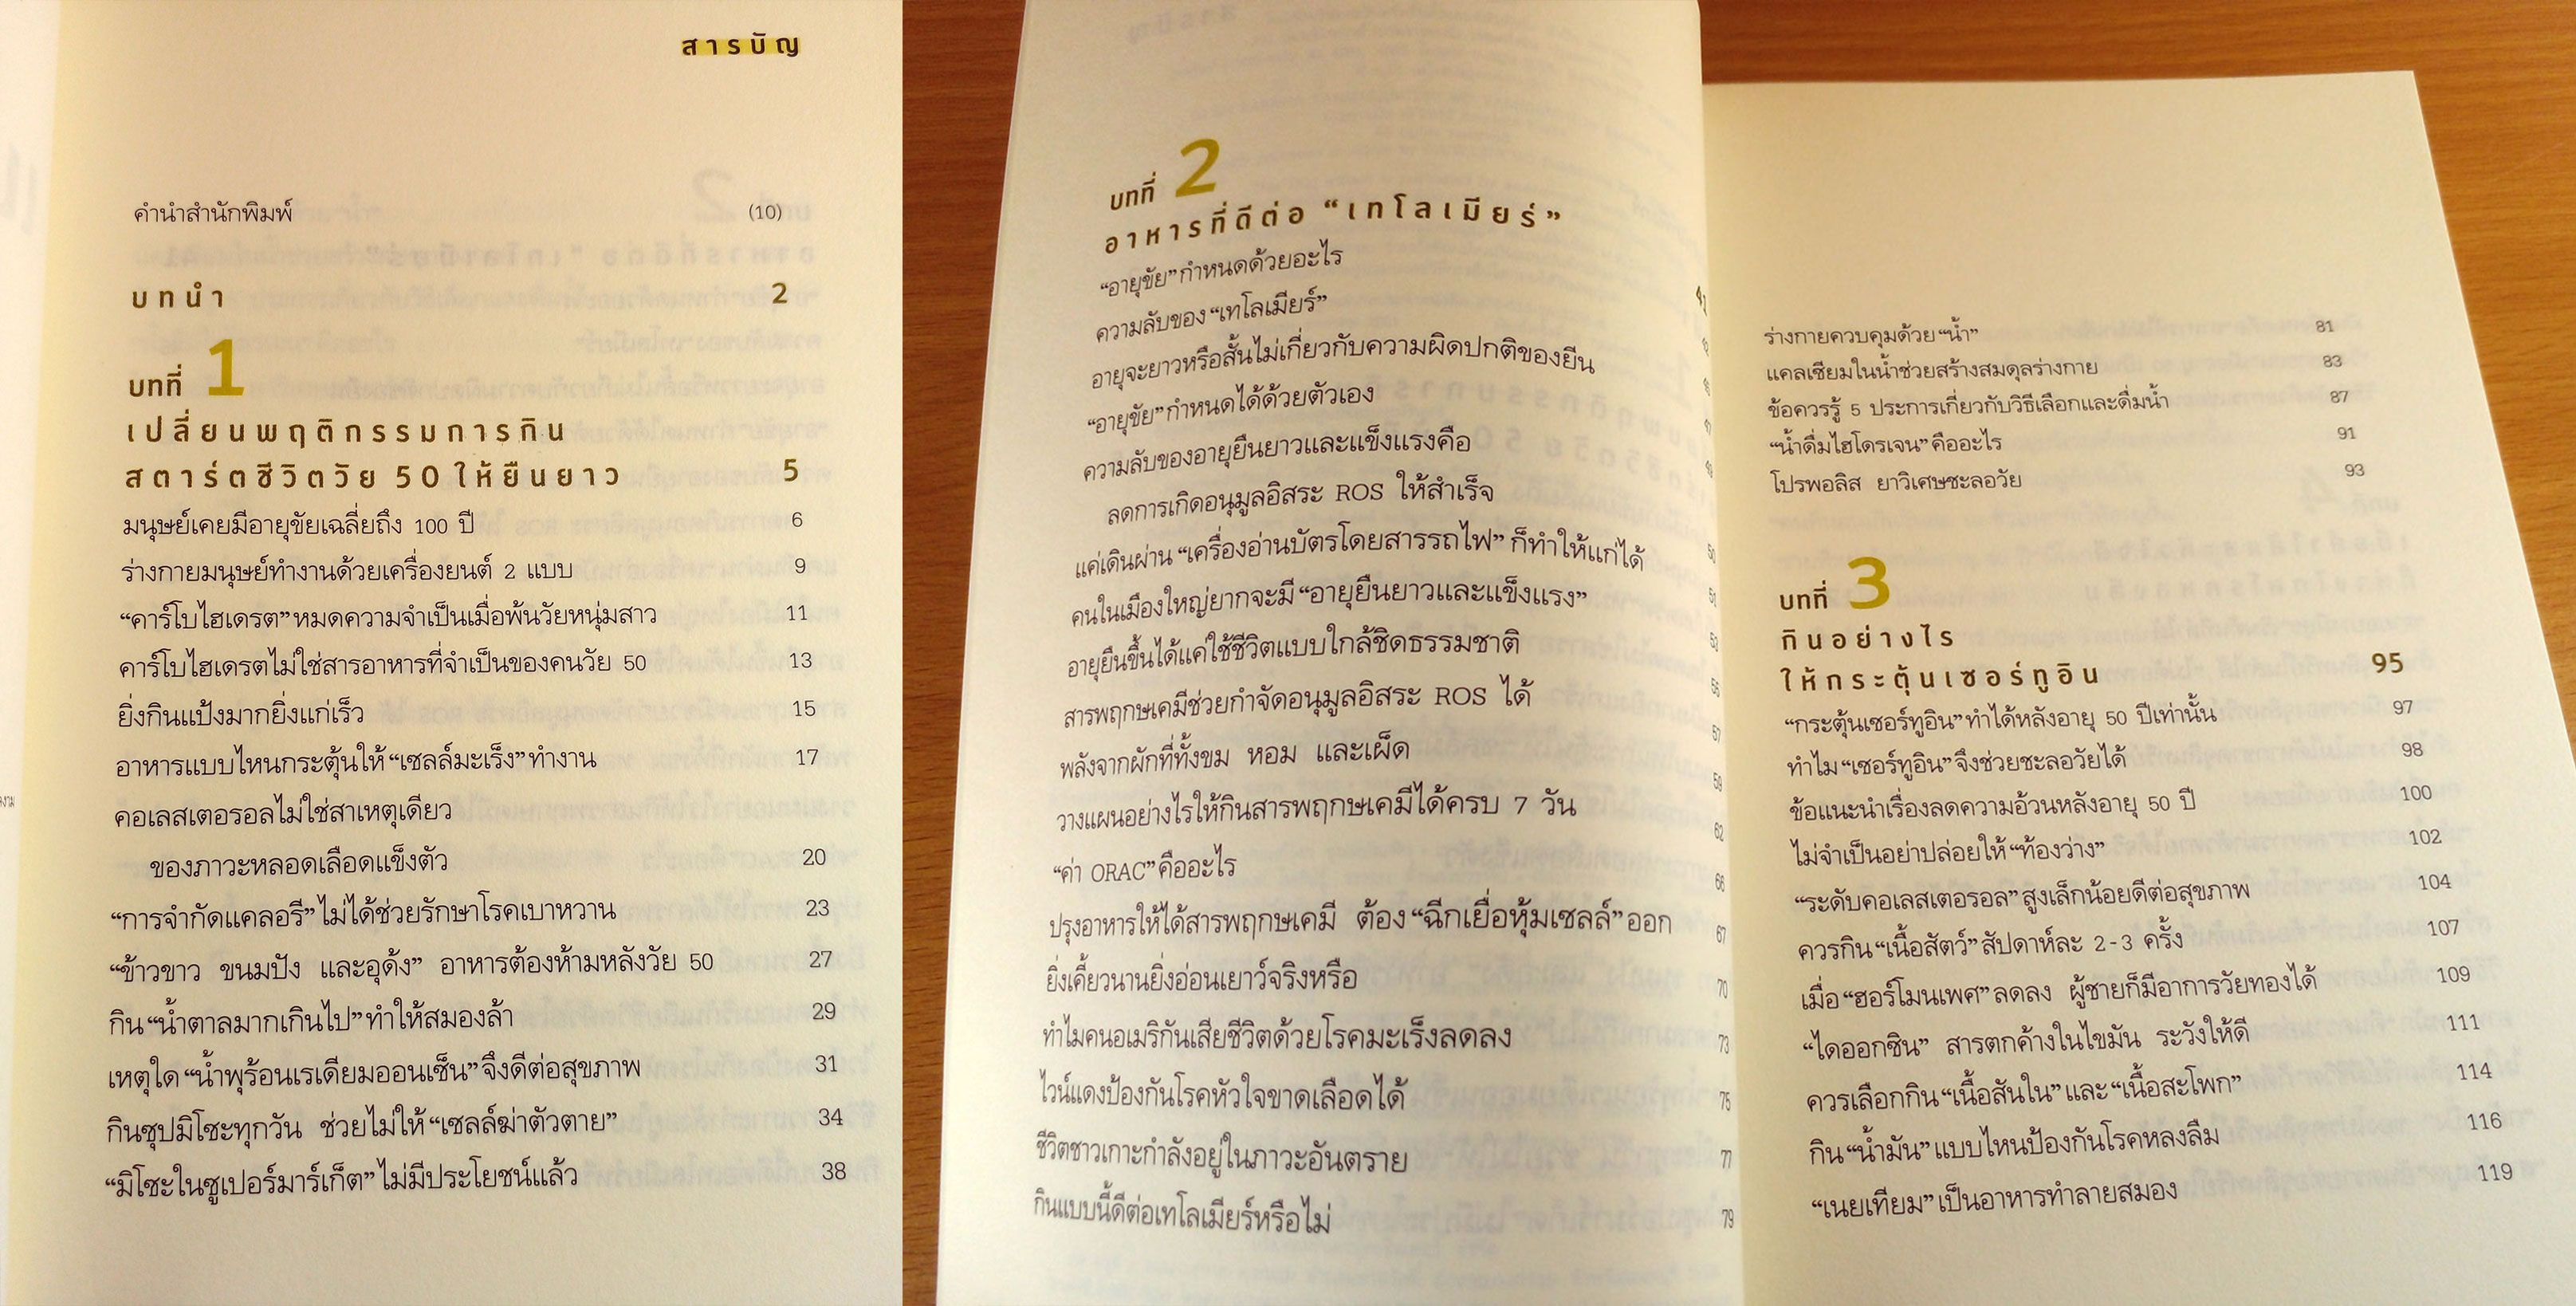 สารบัญ
คำนำสำนักพิมพ์ (10)
บทนำ 2
บทที่ 1
เปลี่ยนพฤติกรรมการกิน
สตาร์ตชีวิตวัย 50 ให้ยืนยาว 5
มนุษย์เคยมีอายุขัยเฉลี่ยถึง 100 ปี 6
ร่างกายมนุษย์ทำงานด้วยเครื่องยนต์ 2 แบบ 9
“คาร์โบไฮเดรต” หมดความจำเป็นเมื่อพ้นวัยหนุ่มสาว 11
คาร์โบไฮเดรตไม่ใช่สารอาหารที่จำเป็นของคนวัย 50 13
ยิ่งกินแป้งมากยิ่งแก่เร็ว 15
อาหารแบบไหนกระตุ้นให้ “เซลล์มะเร็ง” ทำงาน 17
คอเลสเตอรอลไม่ใช่สาเหตุเดียว
ของภาวะหลอดเลือดแข็งตัว 20
“การจำกัดแคลอรี” ไม่ได้ช่วยรักษาโรคเบาหวาน 23
“ข้าวขาว ขนมปัง และอุด้ง” อาหารต้องห้ามหลังวัย 50 27
กิน “น้ำตาลมากเกินไป” ทำให้สมองล้า 29
เหตุใด “น้ำพุร้อนเรเดียมออนเซ็น” จึงดีต่อสุขภาพ 31
กินซุปมิโซะทุกวัน ช่วยไม่ให้ “เซลล์ฆ่าตัวตาย” 34
“มิโซะในซูเปอร์มาร์เก็ต” ไม่มีประโยชน์แล้ว 38
บทที่ 2
อาหารที่ดีต่อ “เทโลเมียร์”
“อายุขัย” กำหนดด้วยอะไร
ความลับของ “เทโลเมียร์”
อายุจะยาวหรือสั้นไม่เกี่ยวกับความผิดปกติของยีน
“อายุขัย” กำหนดได้ด้วยตัวเอง
ความลับของอายุยืนยาวและแข็งแรงคือ
ลดการเกิดอนุมูลอิสระ ROS ให้สำเร็จ
แค่เดินผ่าน “เครื่องอ่านบัตรโดยสารรถไฟ” ก็ทำให้แก่ได้ 50
คนในเมืองใหญ่ยากจะมี “อายุยืนยาวและแข็งแรง” 51
อายุยืนขึ้นได้แค่ใช้ชีวิตแบบใกล้ชิดธรรมชาติ 53
สารพฤกษเคมีช่วยกำจัดอนุมูลอิสระ ROS ได้
พลังจากผักที่ทั้งขม หอม และเผ็ด 57
วางแผนอย่างไรให้กินสารพฤกษเคมีได้ครบ 7 วัน 59
“ค่า ORAC” คืออะไร 62
ปรุงอาหารให้ได้สารพฤกษเคมี ต้อง “ฉีกเยื่อหุ้มเซลล์” ออก 67
ยิ่งเคี้ยวนานยิ่งอ่อนเยาว์จริงหรือ 70
ทำไมคนอเมริกันเสียชีวิตด้วยโรคมะเร็งลดลง 73
ไวน์แดงป้องกันโรคหัวใจขาดเลือดได้ 75
ชีวิตชาวเกาะกำลังอยู่ในภาวะอันตราย 77
กินแบบนี้ดีต่อเทโลเมียร์หรือไม่ 79
ร่างกายควบคุมด้วย “น้ำ” 81
แคลเซียมในน้ำช่วยสร้างสมดุลร่างกาย 83
ข้อควรรู้ 5 ประการเกี่ยวกับวิธีเลือกและดื่มน้ำ 87
“น้ำดื่มไฮโดรเจน” คืออะไร 91
โปรพอลิส ยาวิเศษชะลอวัย 93
บทที่ 3
กินอย่างไร
ให้กระตุ้นเซอร์ทูอิน 95
“กระตุ้นเซอร์ทูอิน” ทำได้หลังอายุ 50 ปีเท่านั้น 97
ทำไม “เซอร์ทูอิน” จึงช่วยชะลอวัยได้ 98
ข้อแนะนำเรื่องลดความอ้วนหลังอายุ 50 ปี 100
ไม่จำเป็นอย่าปล่อยให้ “ท้องว่าง” 102
“ระดับคอเลสเตอรอล” สูงเล็กน้อยดีต่อสุขภาพ 104
ควรกิน “เนื้อสัตว์” สัปดาห์ละ 2-3 ครั้ง 107
เมื่อ “ฮอร์โมนเพศ” ลดลง ผู้ชายก็มีอาการวัยทองได้ 109
“ไดออกซิน” สารตกค้างในไขมัน ระวังให้ดี 111
ควรเลือกกิน “เนื้อสันใน” และ “เนื้อสะโพก” 114
กิน “น้ำมัน” แบบไหนป้องกันโรคหลงลืม 116
“เนยเทียม” เป็นอาหารทำลายสมอง 119